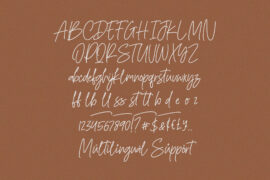 ABCDEFGHIJKLMN
OPQRSTUVWXYZ
abcdefghijklmnopqrstuvwxyz
ff lb ll ss st tt b d e o z
1234567890!?#$&€£¥..
Multilingual Support